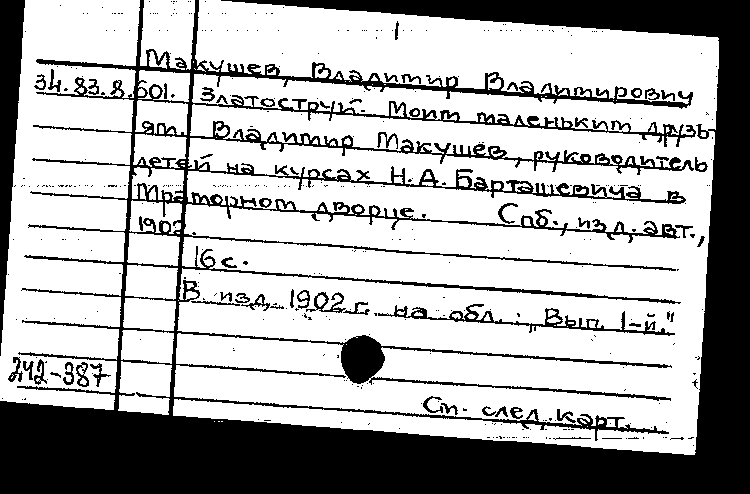 1
Макушев, Владимир Владимирович
34.83.8.601. Златоструй. Моим маленьким друзь-
ям. Владимир Макушев, руководитель
детей на курсах Н.А.Барташевича в
Мраморном дворце. Спб., изд. авт.,
1902.
16 с.
В изд. 1902 г. на обл.: „Вып. 1-й."
242-387
См. след. карт.